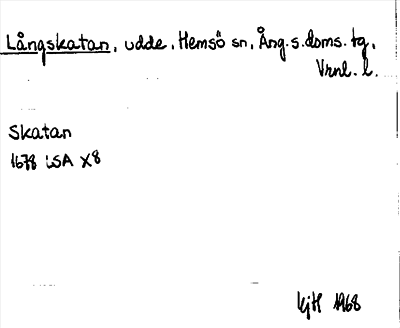 Långskatan, udde, Hemsö sn, Ång.s.doms.tg,
Vrnl. l.
Skatan
1678 LSA X8
KjH 1968